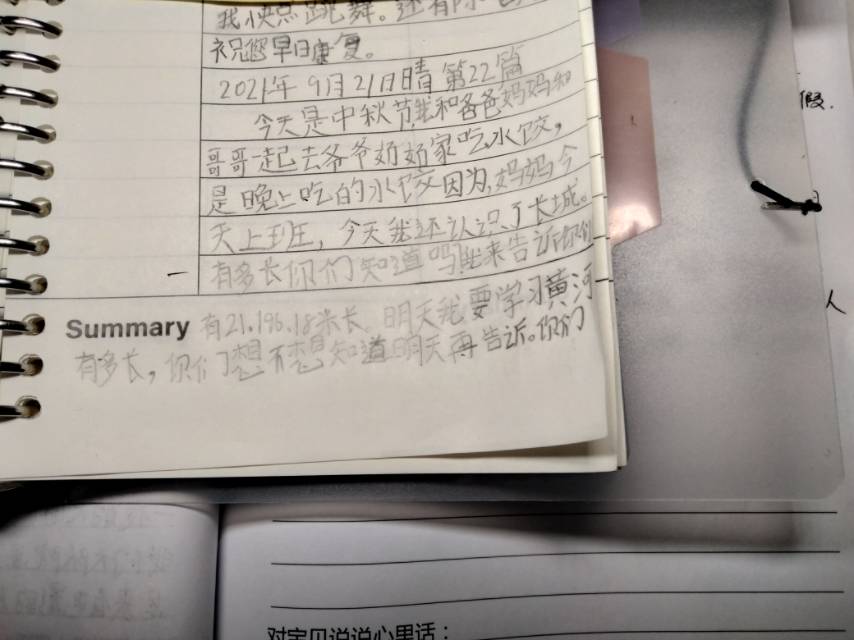 我快点跳舞。还有
祝您早日康复。
2021年9月21日晴第22篇
今天是中秋节,我和爸爸妈妈和
哥哥一起去爷爷奶奶家吃水饺,
是晚上吃的水饺因为,妈妈今
天上班,今天我还认识了长城。
有多长你们知道吗?我来告诉你们
Summary 有21.196.18米长。明天我要学习黄河
有多长,你们想不想知道明天再告诉。你们
假.
人
对宝贝说说心里话: